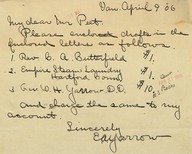 Van. April 9 06
My dear Mr Peet.
Please enclose drafts in the
enclosed letters as follows.
1 Rev. C. A. Butterfield $1.
2 Empire Steam Laundry
Hartford Conn $1.
3 Geo. W. H. Yarrow D.D. $10.
and charge the same to my
account.
Sincerely
E A Yarrow